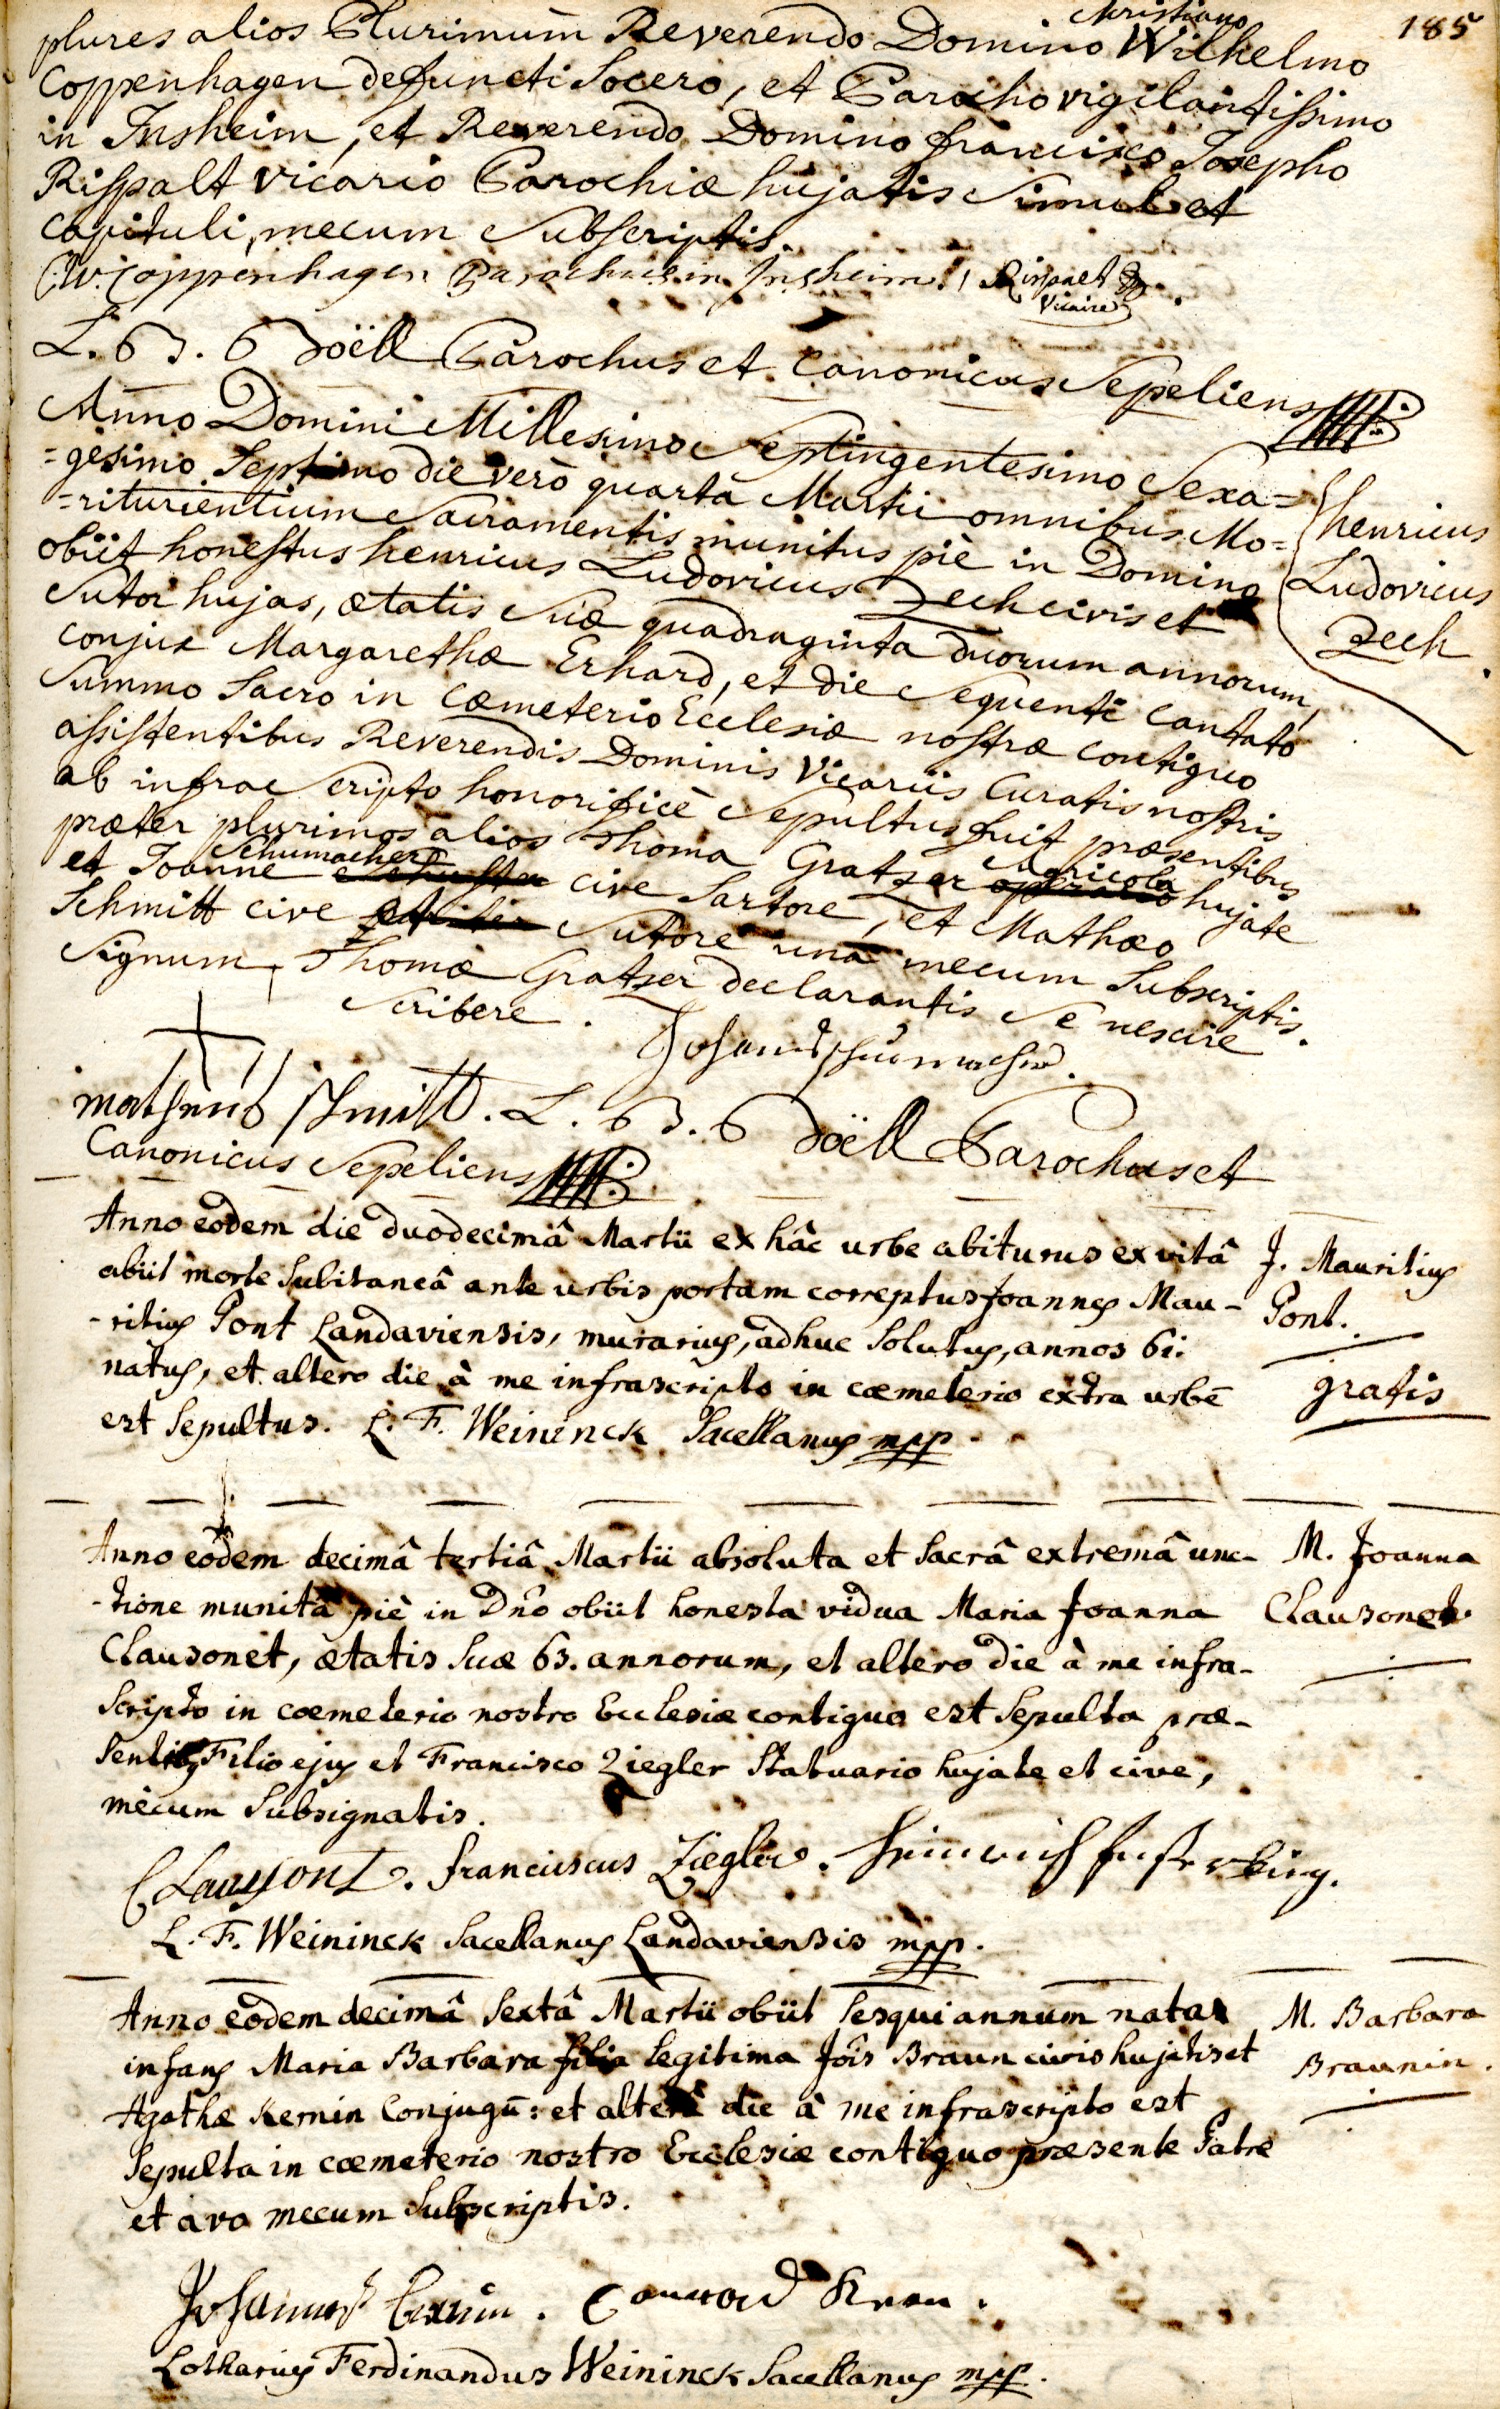 185
plures alios Plurimum Reverendo Domino Christiano Wilhelmo
Coppenhagen defuncti Socero, et Parocho vigilantissimo
in Insheim, et Reverendo Domino francisco Josepho
Rispalt vicario Parochiæ hujatis simul et
capituli, mecum subscriptis.
C. W. Coppenhagen Parochus in Insheim. Rispalt
Vicaire
L. B. J. B Doëll Parochus et Canonicus Sepeliens
Anno Domini Millesimo Septingentesimo Sexa=
=gesimo Septimo die verò quarta Martii omnibus Mo=
=riturientium Sacramentis munitus piè in Domino
obiit honestus henricus Ludovicus Zech civis et
Sutor hujas, ætatis suæ quadraginta duorum annorum,
conjux Margarethæ Erhard, et die sequenti cantato
Summo Sacro in cæmeterio Ecclesiæ nostræ contiguo
assistentibus Reverendis Dominis Vicariis Curatis nostris
ab infra Scripto honorificè Sepultus fuit præsentibus
præter plurimos alios Thoma Gratzer Agricola hujate
et Joanne Schumacher cive Sartore, et Mathæo
Schmitt cive Sutore una mecum Subscriptis.
Signum Thomæ Gratzer declarantis se nescire
scribere.
henricus
Ludovicus
Zech
Johannes Schumacher.
matheus schmitt. L. B. J. B Doëll Parochus et
Canonicus Sepeliens
Anno eodem die duodecimâ Martii ex hâc urbe abiturus ex vitâ
abiit morte subitaneâ ante urbis portam correptus Joannes Mau-
-ritius Pont Landaviensis, murarius, adhuc solutus, annos 61.
natus, et altero die à me infrascripto in cœmeterio extra urbē
est sepultus. L. F. Weininck Sacellanus mpp.
J. Mauritius
Pont.
gratis
Anno eodem decimâ tertiâ Martii absoluta et sacrâ extremâ unc-
-tione munita piè in Dño obiit honesta vidua Maria Joanna
Clausonet, ætatis suæ 63. annorum, et altero die à me infra-
scripto in cœmeterio nostro Ecclesiæ contiguo est sepulta præ-
sentibus Filio ejus et Francisco Ziegler Statuario hujate et cive,
mecum subsignatis.
M. Joanna
Clausonet.
Franciscus Ziegler. Heinrich
L. F. Weininck Sacellanus Landaviensis mpp.
Anno eodem decimâ sextâ Martii obiit sesquiannum nata
infans Maria Barbara filia legitima Jois Braun civis hujatis et
Agathæ Kernin Conjugū: et alterâ die à me infrascripto est
sepulta in cœmeterio nostro Ecclesiæ contiguo præsente Patre
et avo mecum subscriptis.
M. Barbara
Braunin.
Johannes Braun. Connrad Kern.
Lotharius Ferdinandus Weininck Sacellanus mpp.